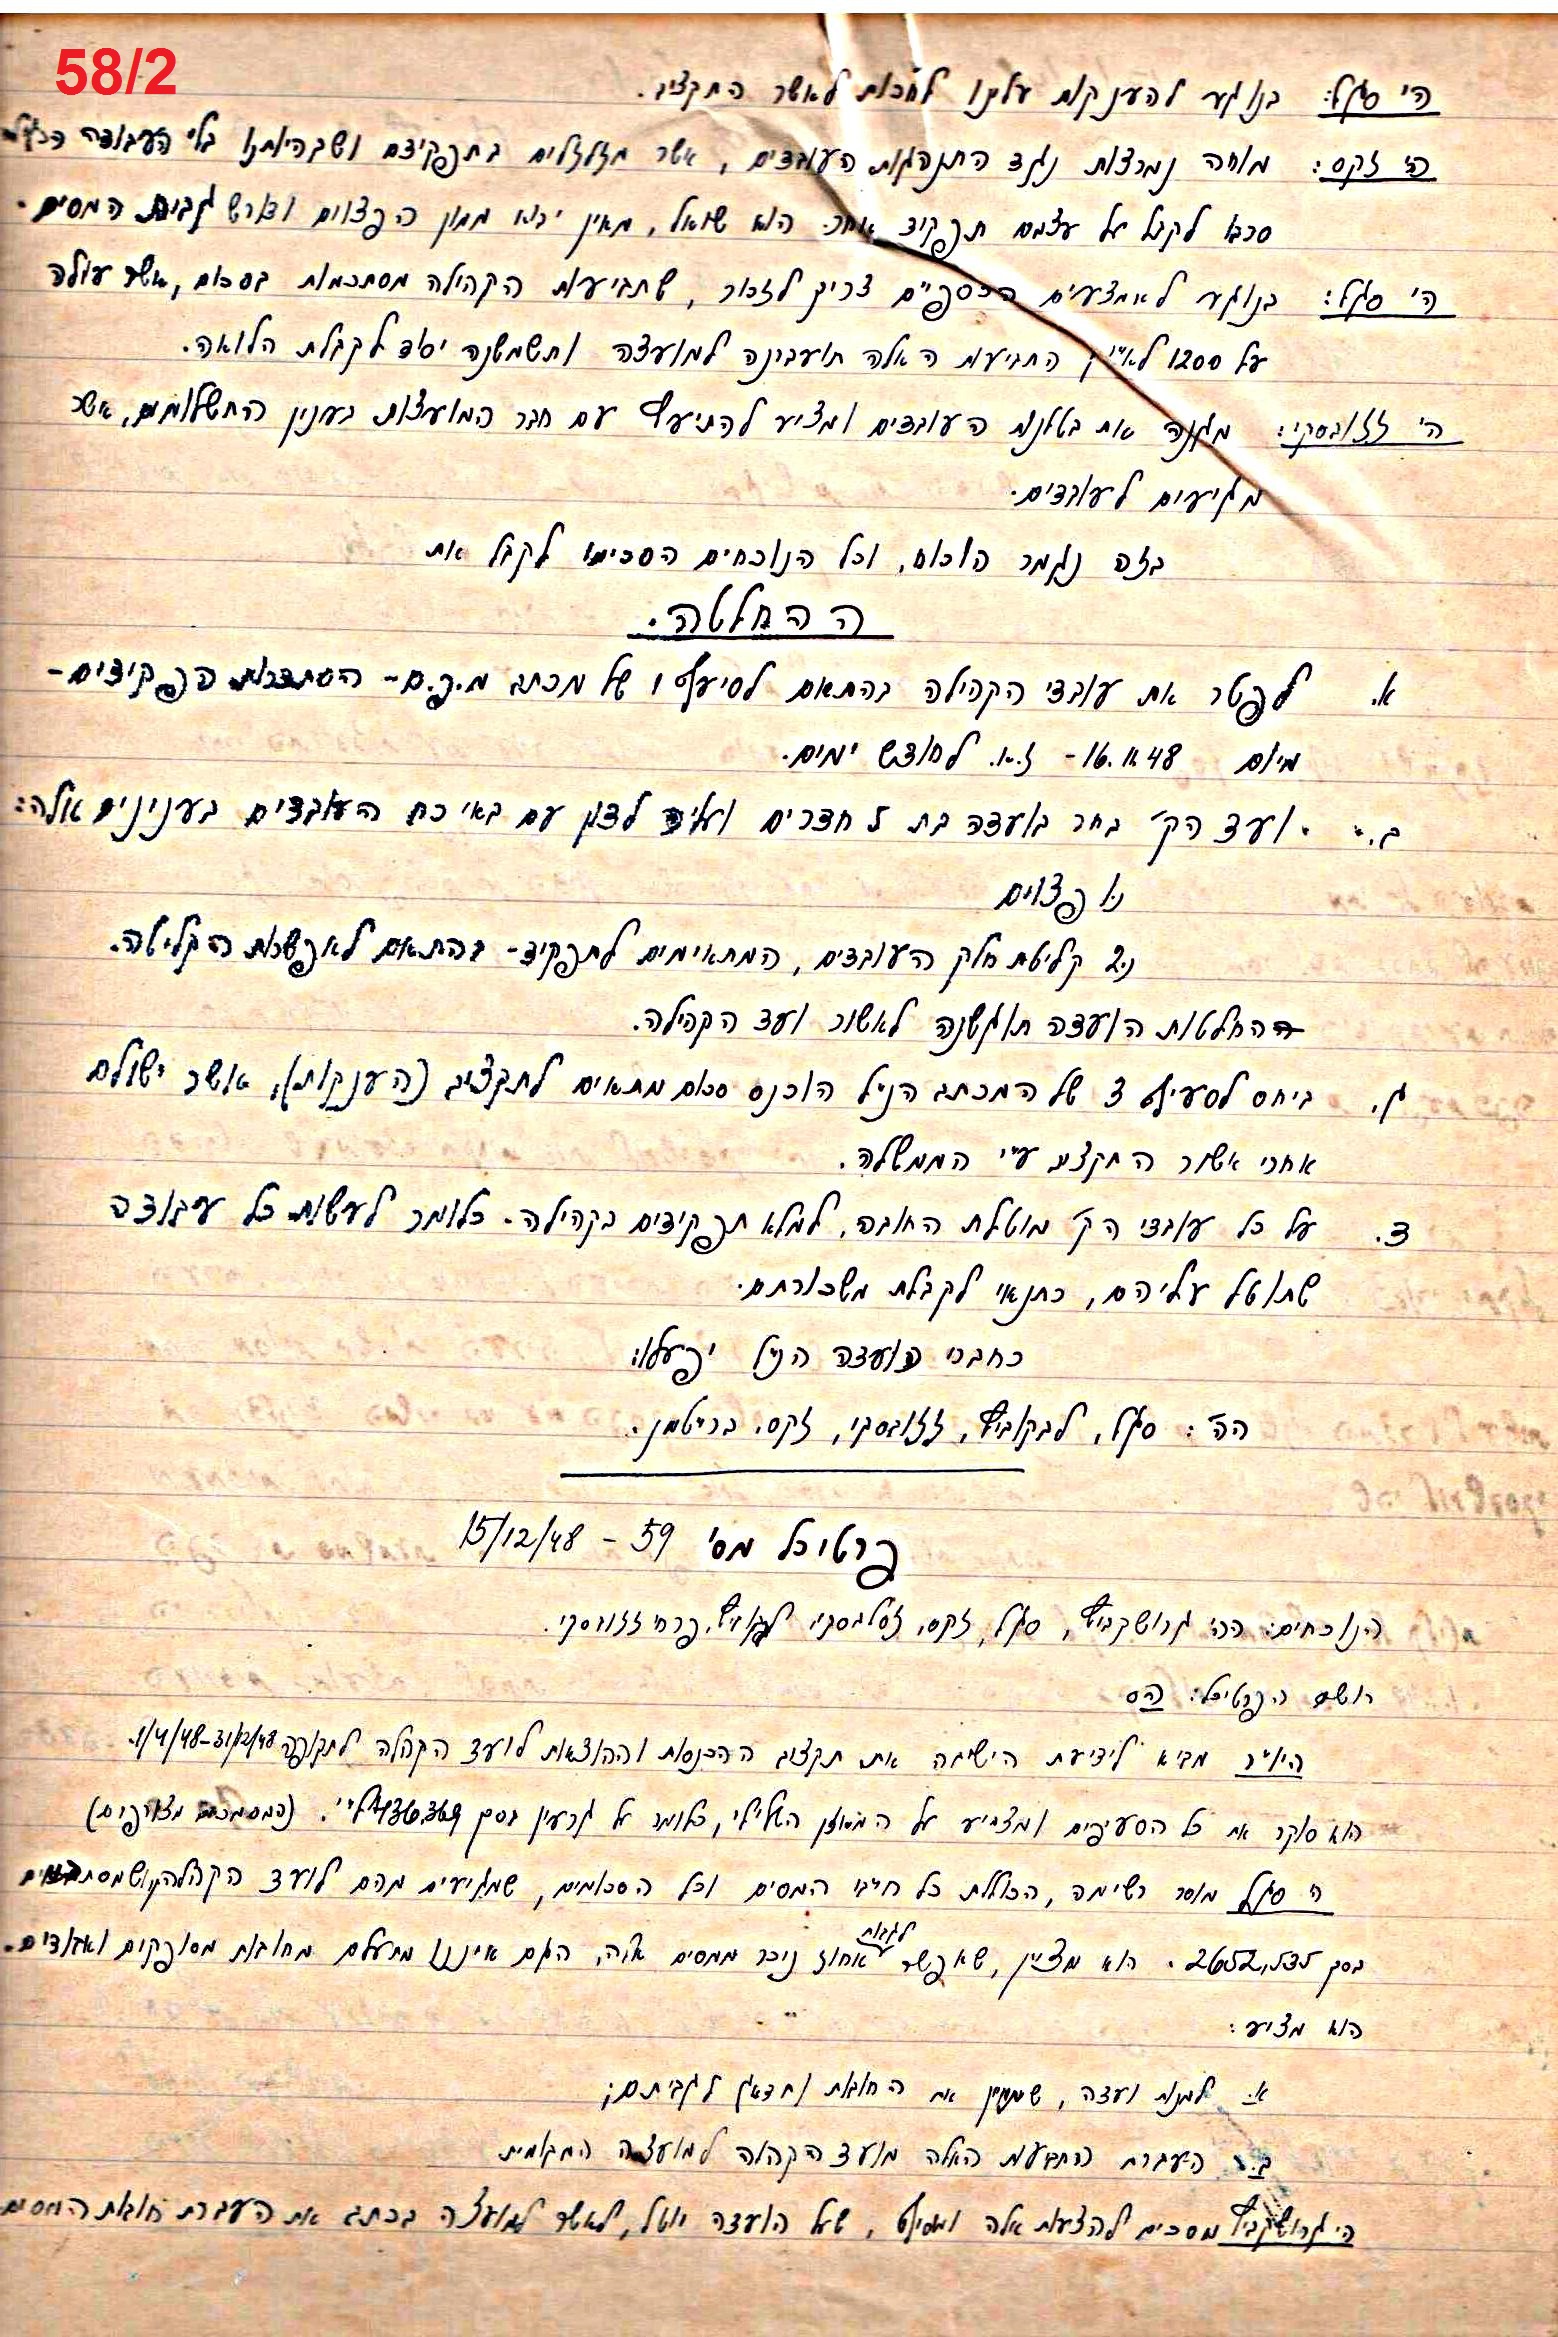 58/2
ה' סגל: בנוגע להענקות עלינו לחכות לאשר התקציב.
ה' זקס: מוחה נמרצות נגד התנהגות העובדים, אשר מזלזלים בתפקידם ושבהיותנו בלי העבודה
סרבו לקבל על עצמם תפקיד אחר. הוא שואל, מאין יבוא ממון הפצוים וצורש גביית המסים.
ה' סגל: בנוגע לאמצעים הכספיים צריך לזכור, שתביעות הקהילה מסתכמות בסכום, אשר עולה
על 1200 לא"י התביעות האלה תועברנה למועצה ותשמשנה יסוד לקבלת הלואה.
ה' זזובסקי: מגנה את בטלנות העובדים ומציע להתיעץ עם חבר המועצות בענין התשלומים, אשר
מגיעים לעובדים.
בזה נגמר הוכוח, וכל הנוכחים הסכימו לקבל את
ההחלטה.
א. לפטר את עובדי הקהילה בהתאם לסיעף 1 של מכתב מ.פ.ם - הסתדרות הפקידים -
מיום 16.11.48 - ז.א. לחודש ימים.
ב. ועד הק' בחר בועדה בת 5 חברים ועליה לדון עם באי כח העובדים בענינים אלה:
1. פצוים
2. קליטת חלק העובדים, המתאימים לתפקיד - בהתאם לאפשרות הקליטה.
החלטות הועדה תוגשנה לאשור ועד הקהילה.
ג. ביחס לסעיף 3 של המכתב הנ"ל הוכנס סכום מתאים לתקציב (הענקות), אשר ישולם
אחרי אשור התקציב ע"י הממשלה.
ד. על כל עובדי הק' מוטלת החובה, למלא תפקידים בקהילה. כלומר לעשות כל עבודה
שתוטל עליהם, כתנאי לקבלת משכורתם.
כחברי הועדה הנ"ל יפעלו:
הה': סגל, לבקוביץ, זזובסקי, זקס, ברייטמן.
פרטיכל מס' 59 - 15/12/48
הנוכחים: הה' גרושקביץ, סגל, זקס, זסלבסקי, לבקוביץ, פרחי זזובסקי.
רושם הפרטיכל: הס
היו"ר מביא לידיעת הישיבה את תקציב ההכנסות וההוצאות לועד הקהלה לתקופה 1/4/48-31/12/48.
הוא סוקר את כל הסעיפים ומצביע על המאזן השלילי, כלומר על גרעין בסך (המסמכים מצורפים)
ה' סגל מוסר רשימה, הכוללת כל חייבי המסים וכל הסכומים, שמגיעים מהם לועד הקהלה
בסך 2652,535. הוא מציין, שאפשר לגבות אחוז ניכר ממסים אלה, האם איננו מתעלם מחובות מסופקים ואבודים.
הוא מציע:
א. למנות ועדה, שתמיין את החובות ותדאג לגביתם;
ב. העברת התביעות האלה מועד הקהלה למועצה המקומית
ה' גרושקביץ מסכים להצעות אלה ומוסיף, שעל הועדה יוטל, לאשר למועצה בכתב את העברת חובות המסים